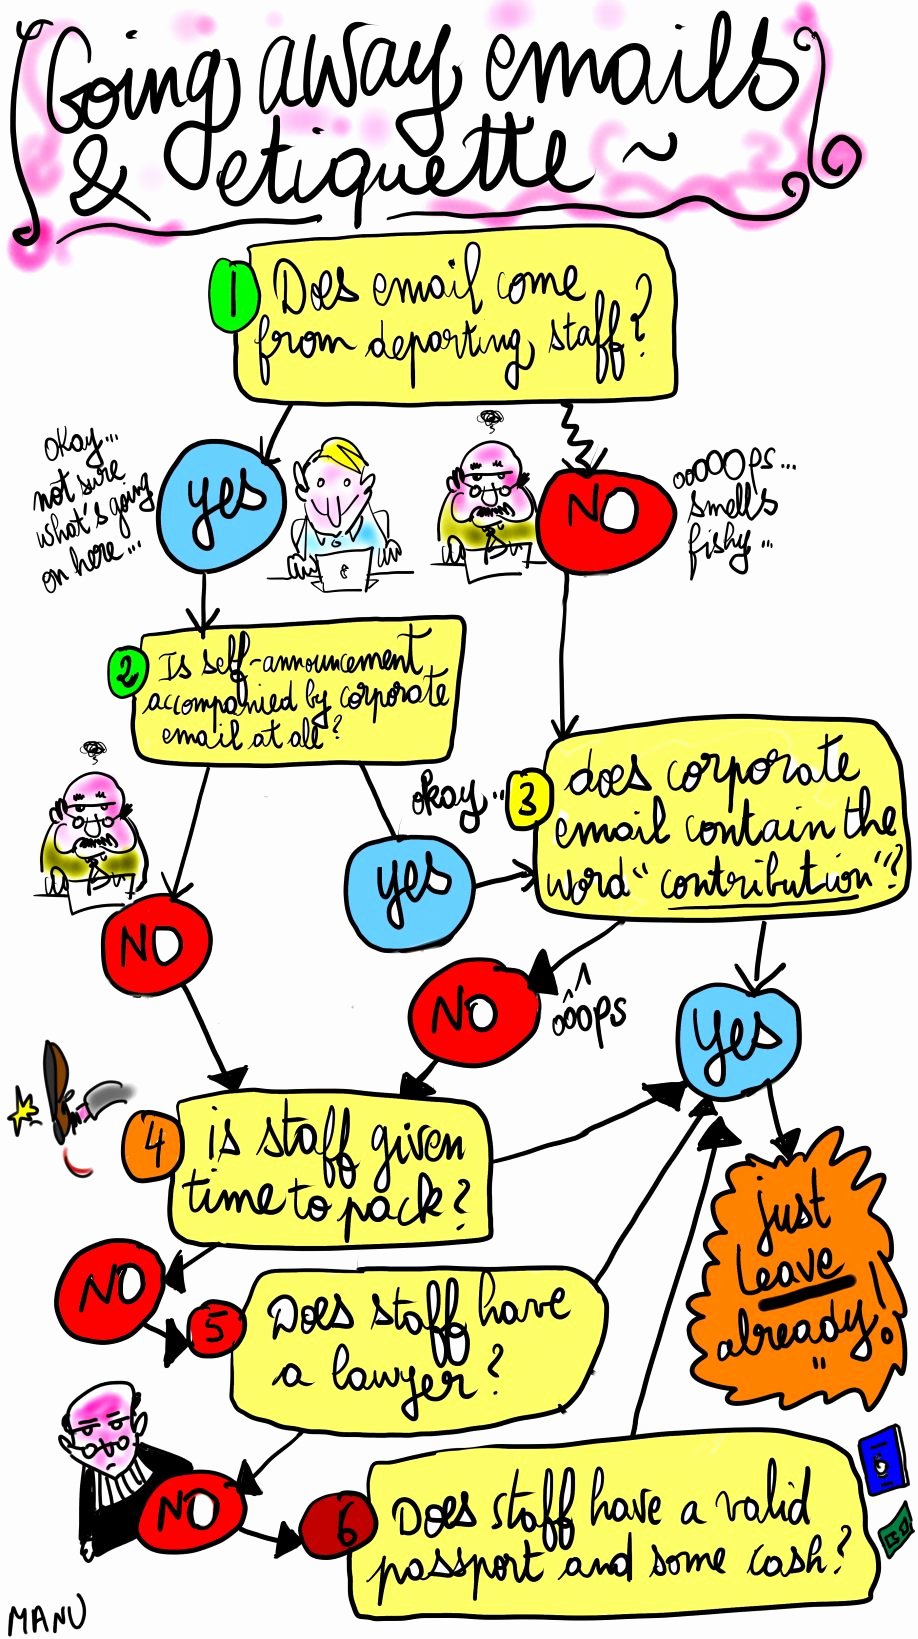 Going away emails
& etiquette ~
1
Does email come
from departing staff?
okay...
not sure
what's going
on here...
yes
NO
ooOOOps...
smells
fishy...
2
Is self-announcement
accompanied by corporate
email at all?
okay..
3
does corporate
email contain the
word "contribution"?
NO
yes
NO
oôôps
yes
4
is staff given
time to pack?
just
leave
already!
NO
5
Does staff have
a lawyer?
NO
6
Does staff have a valid
passport and some cash?
MANU